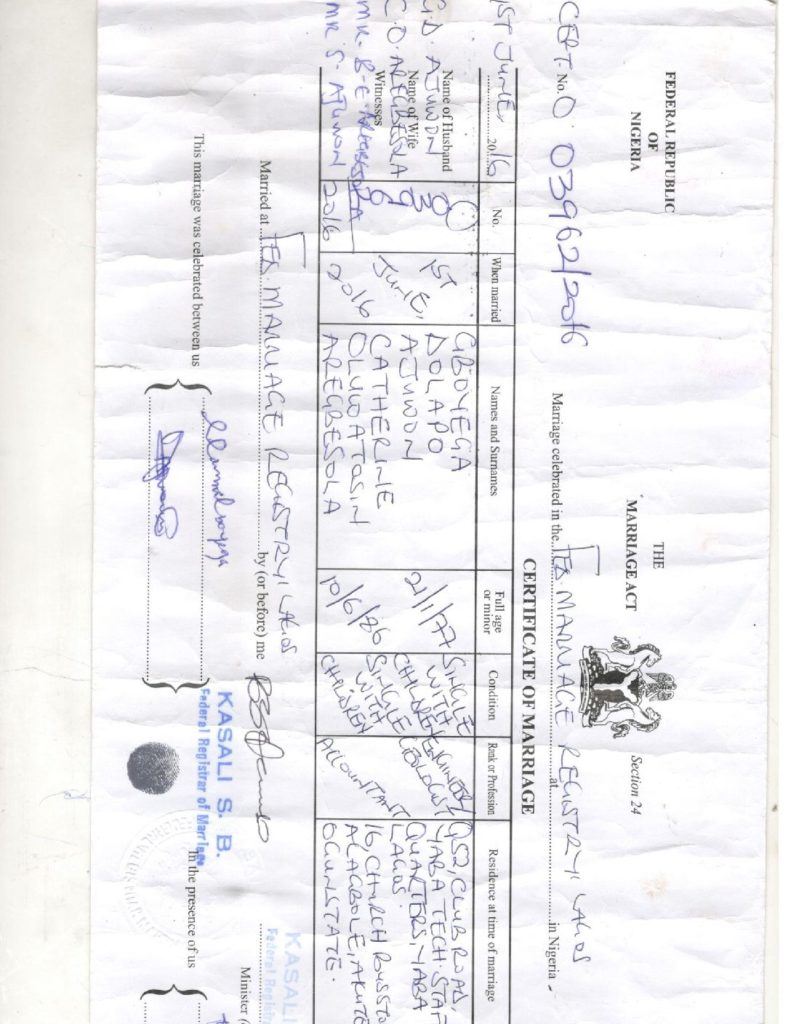 FEDERAL REPUBLIC
OF
NIGERIA
CERT. No. O. 03962/2016
1ST JUNE, 2016
Name of Husband
G.D. AJUWON
Name of Wife
C.O. AREGBESOLA
Witnesses
MR. B.E. AREGBESOLA
MR S. AJUWON
THE
MARRIAGE ACT
Section 24
Marriage celebrated in the FED. MARRIAGE REGISTRY, LAGOS at in Nigeria
CERTIFICATE OF MARRIAGE
No.
When married
Names and Surnames
Full age
or minor
Condition
Rank or Profession
Residence at time of marriage
2016
1ST
JUNE,
2016
GBOYEGA
DOLAPO
AJUWON
CATHERINE
OLUWATOSIN
AREGBESOLA
21/1/77
10/6/86
SINGLE
WITH
CHILDREN
SINGLE
WITH
CHILDREN
GEOLOGIST
ACCOUNTANT
Q52, CLUB ROAD,
YABA TECH. STAF
QUARTERS, YABA
LAGOS.
16, CHURCH BUSSTO
ALAGBOLE, AKUTE
OGUN STATE.
Married at FED. MARRIAGE REGISTRY, LAGOS by (or before) me
KASALI S. B.
Federal Registrar of Marriage
KASALI
Federal Registr
Minister (
This marriage was celebrated between us
In the presence of us